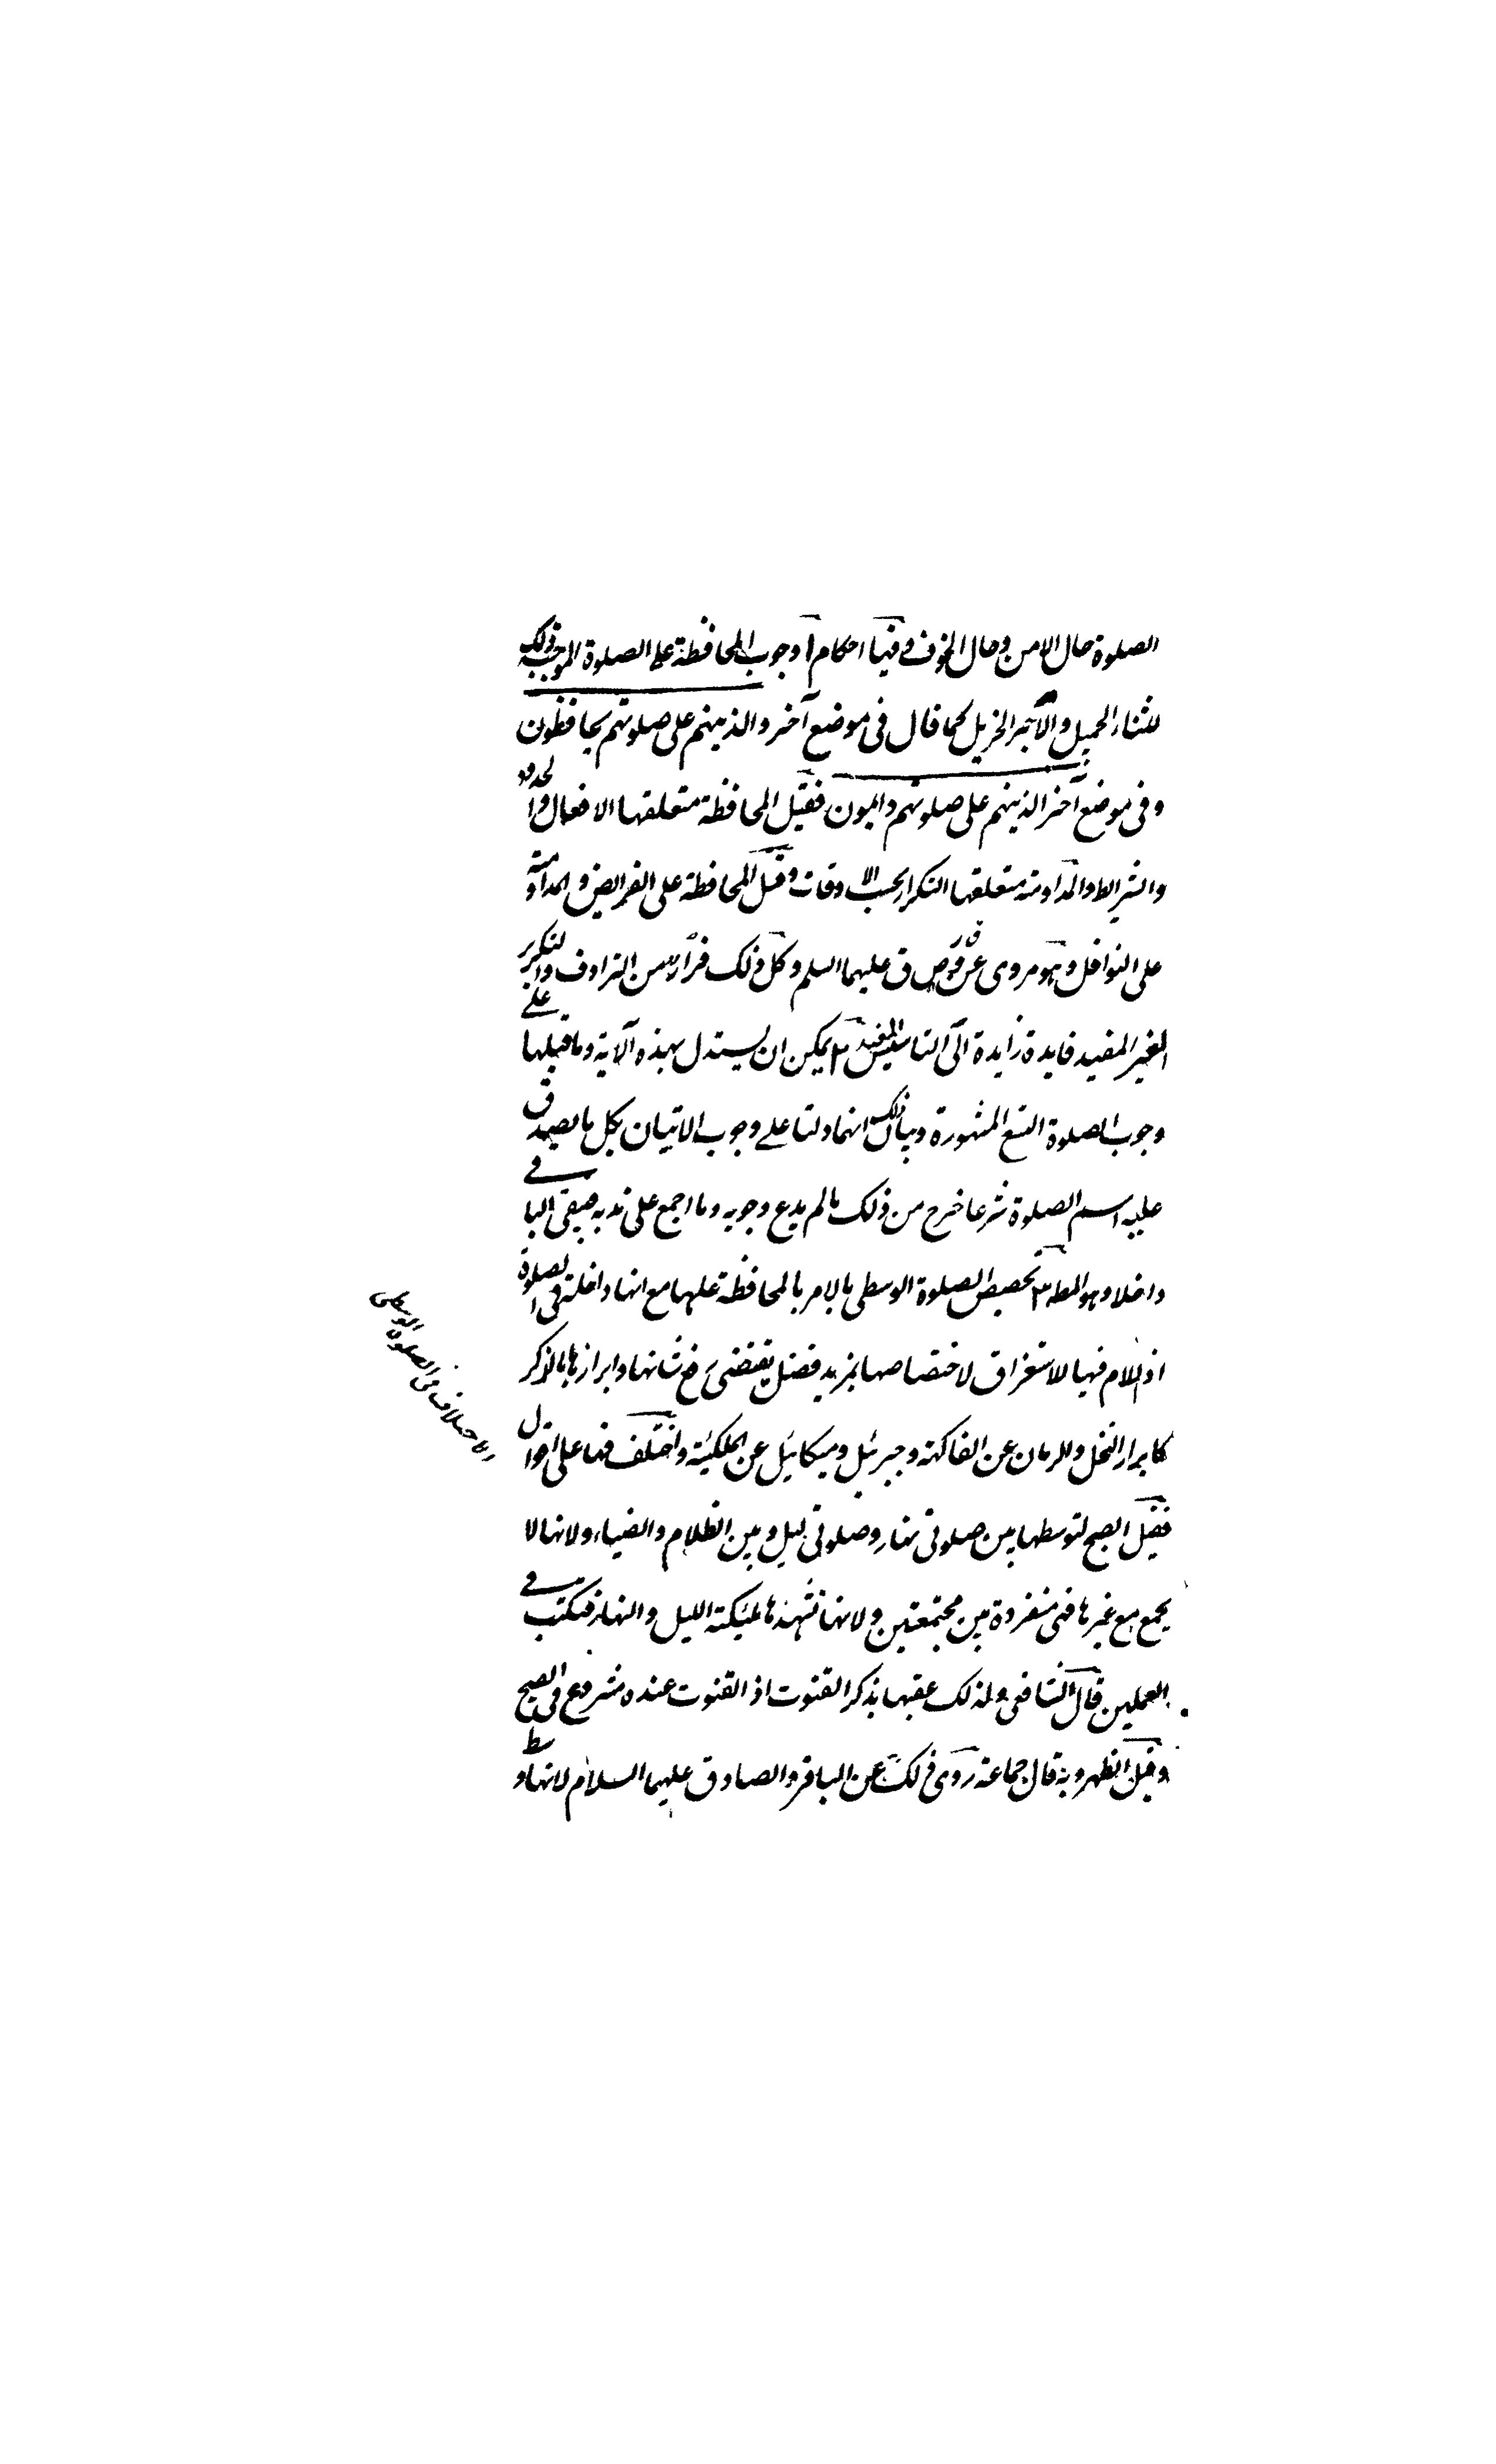 الصلوة حال الامن وحال الخوف وفيها احكام ١ وجوب المحافظة على الصلوة الموجبة ذلك
للثناء الجميل والاجر الجزيل كما قال فى موضع آخر والذينهم على صلوتهم يحافظون
وفى موضع آخر الذينهم على صلوتهم دايمون فقيل المحافظة متعلقها الافعال والحدود
والشرايط والمداومة متعلقها التكرار بحسب الاوقات وقيل المحافظة على الفرايض والمداومة
على النوافل وهو مروى عن ق وص ق عليهما السلم وكل ذلك فرارا من الترادف والتكرير
الغير المفيد فايدة زايدة الى التاسيس المفيد ٢ يمكن ان يستدل بهذه الآية وما قبلها على
وجوب الصلوة التسع المشهورة وبيان ذلك انهما دلتا على وجوب الاتيان بكل ما يصدق
عليه اسم الصلوة شرعا خرج من ذلك مالم يدع وجوبه وما اجمع على ندبه فيبقى الباقى
داخلا وهو المط ٣ تخصيص الصلوة الوسطى بالامر بالمحافظة عليها مع انها داخلة فى الصلوة
اذ اللام فيها للاستغراق لاختصاصها بمزيد فضل يقتضى رفع شانها وابرازها بالذكر
كابراز النخل والرمان عن الفاكهة وجبرئيل وميكائيل عن الملئكة واختلف فيها على اقوال
فقيل الصبح لتوسطها بين صلوتى نهار وصلوتى ليل وبين الظلام والضياء ولانها لا
يجمع مع غيرها فهى منفردة بين مجتمعتين ولانها تشهدها ملئكة الليل والنهار فتكتب فى
العملين قال الشافعى ولذلك عقبها بذكر القنوت اذ القنوت عنده مشروع فى الصبح
وقيل الظهر وبه قال جماعة روى ذلك عن الباقر والصادق عليهما السلام لانها وسط
الاختلاف فى الصلوة الوسطى